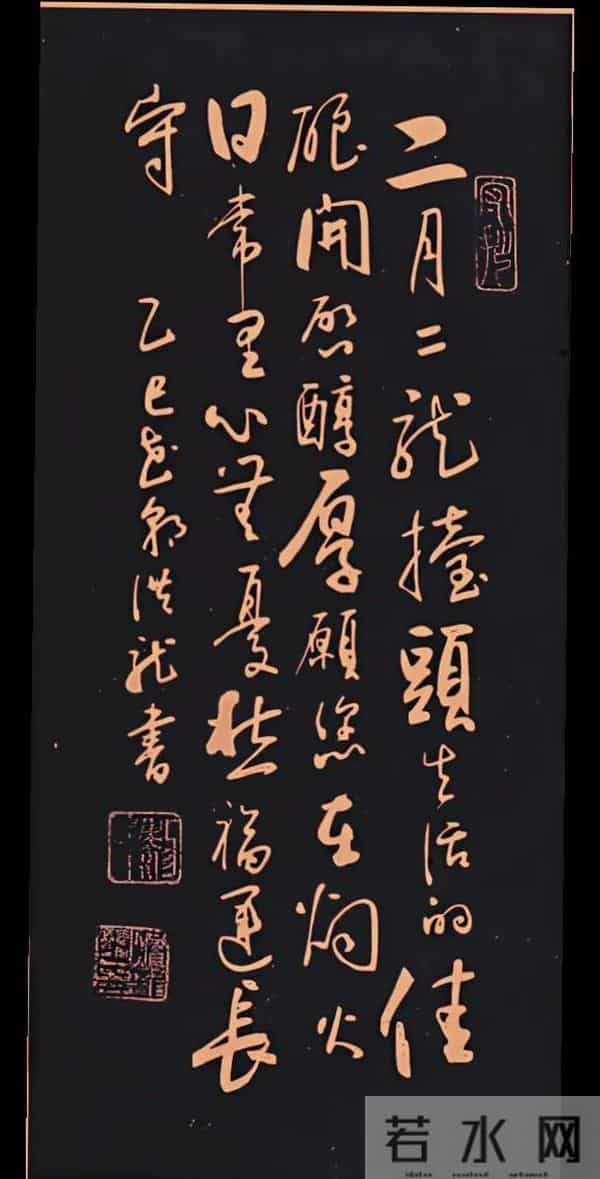 二月二龍擡頭生活的佳
釀開啟醇厚願您在烟火
日常里心無憂愁福運長
守 乙巳 洪龍書
若水网